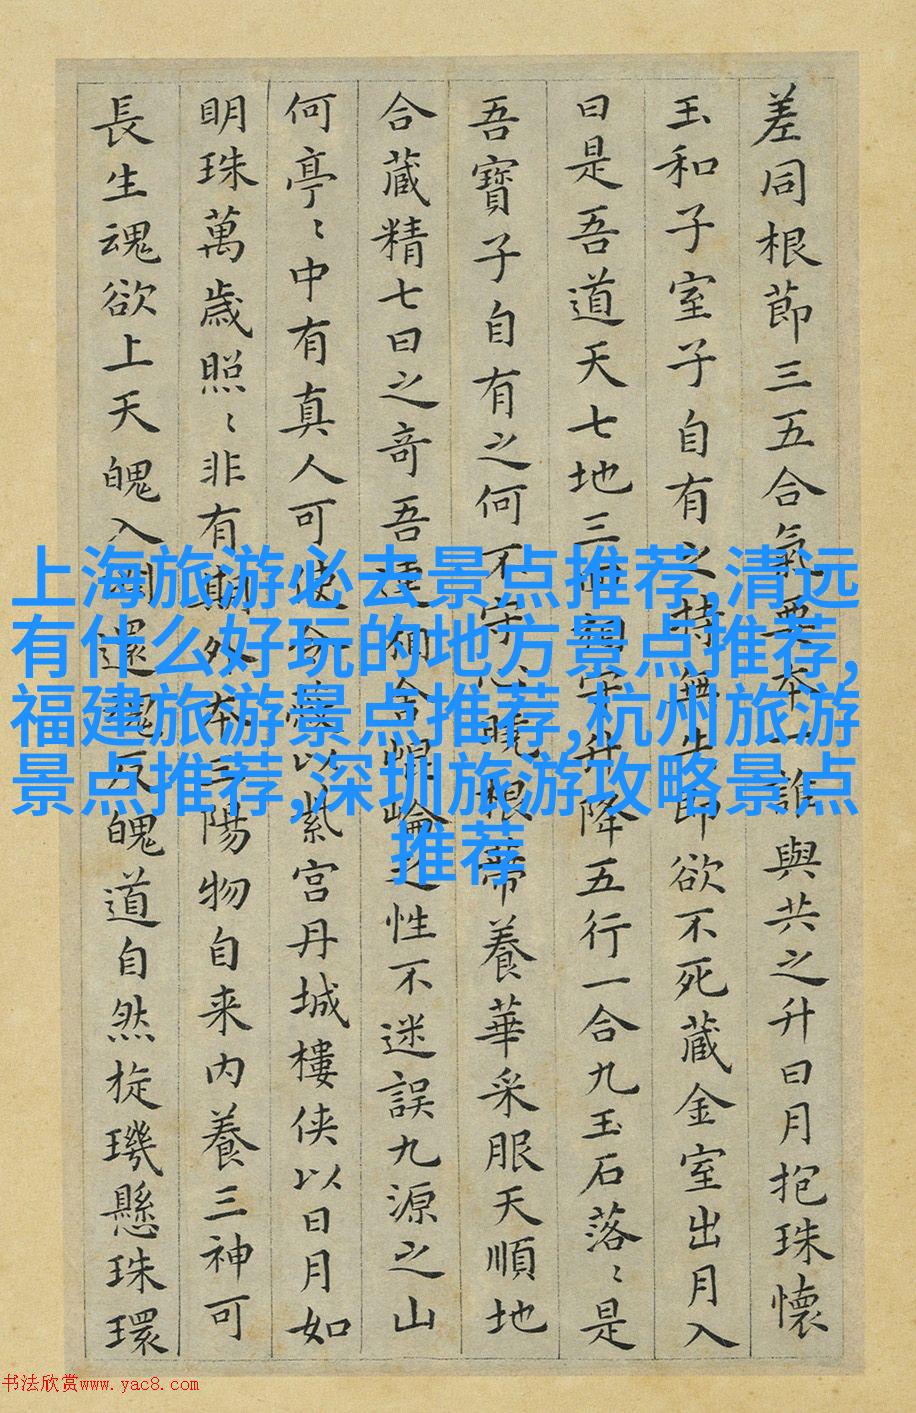 差同根節三五合氣要本一誰與共之升日月抱珠懷
玉和子室子自有之持無失即欲不死藏金室出月入
日是吾道天七地三回相守升降五行一合九玉石落〻是
吾寶子自有之何不守心曉根蒂養華采服天順地
合藏精七日之奇吾連相舍崐崘之性不迷誤九源之山
何亭〻中有真人可使令蔽以紫宮丹城樓俠以日月如
明珠萬歲照〻非有期外本三陽物自来內養三神可
長生魂欲上天魄入淵還魂反魄道自然旋璣懸珠環
上海旅游必去景点推荐,清远
有什么好玩的地方景点推荐,
福建旅游景点推荐,杭州旅游
景点推荐,深圳旅游攻略景点
推荐
书法欣赏www.yac8.com